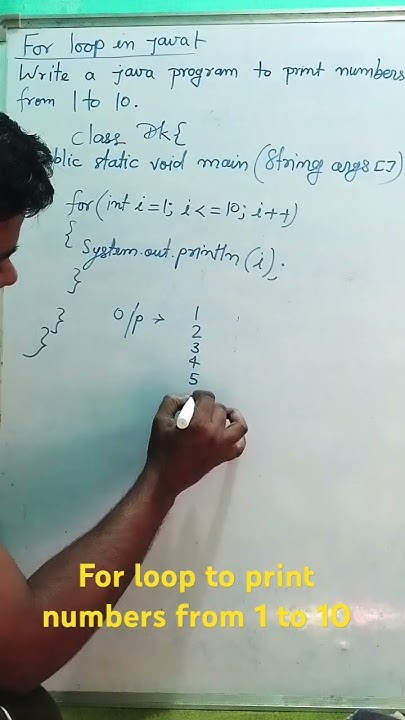 For loop in java
Write a java program to print numbers
from 1 to 10.
class Dk{
blic static void main (String args[])
for(int i=1; i<=10; i++)
{
System.out.println(i);
}
}
}
O/p →
1
2
3
4
5
For loop to print
numbers from 1 to 10